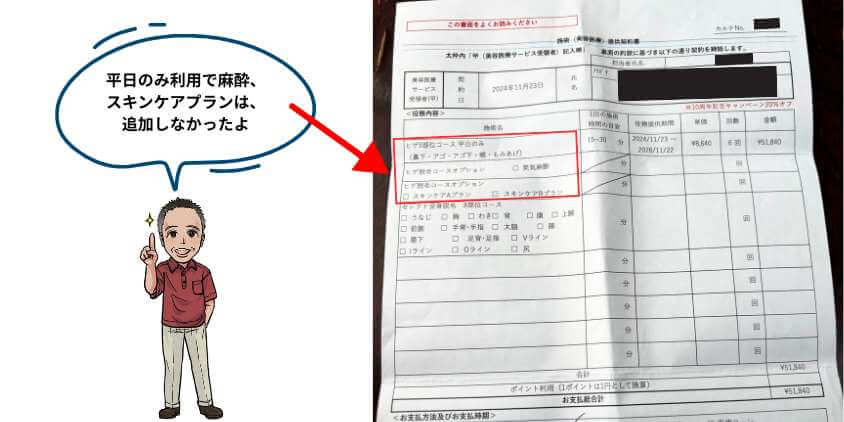 平日のみ利用で麻酔、
スキンケアプランは、
追加しなかったよ
この書面をよくお読みください
カルテNo.
施術（美容医療）提供契約書
太枠内「甲（美容医療サービス受領者）記入欄」
裏面の約款に基づき以下の通り契約を締結します。
担当者氏名
美容医療
サービス
受領者(甲)
契
約
日
2024年11月23日
氏
名
※10周年記念キャンペーン20%オフ
＜役務内容＞
施術名
1回の施術
時間の目安
役務提供期間
単価
回数
金額
ヒゲ3部位コース 平日のみ
（鼻下・アゴ・アゴ下・頬・もみあげ）
15～30 分
2024/11/23 ～
2026/11/22
¥8,640
6 回
¥51,840
ヒゲ脱毛コースオプション □ 笑気麻酔
分
回
ヒゲ脱毛コースオプション
□ スキンケアAプラン □ スキンケアBプラン
分
回
セレクト全身脱毛
部位コース
□ うなじ □ 胸 □ わき □ 背 □ 腹 □ 上腕
□ 前腕 □ 手背・手指 □ 大腿 □ 膝
□ 膝下 □ 足背・足指 □ Vライン
□ Iライン □ Oライン □ 尻
分
回
分
回
分
回
分
回
分
回
分
回
合計
¥51,840
ポイント利用（1ポイントは1円として換算）
お支払総合計
¥51,840
＜お支払方法及びお支払時期＞